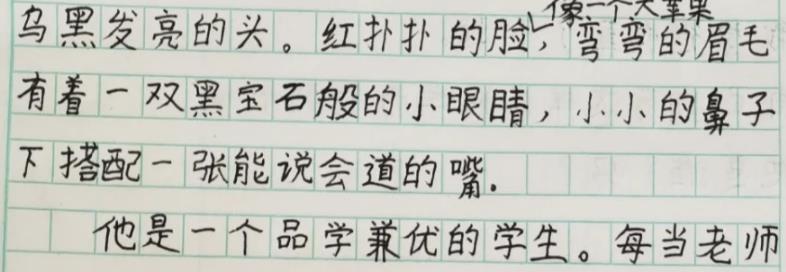 像一个大苹果
乌黑发亮的头。红扑扑的脸，弯弯的眉毛
有着一双黑宝石般的小眼睛，小小的鼻子
下搭配一张能说会道的嘴.
他是一个品学兼优的学生。每当老师